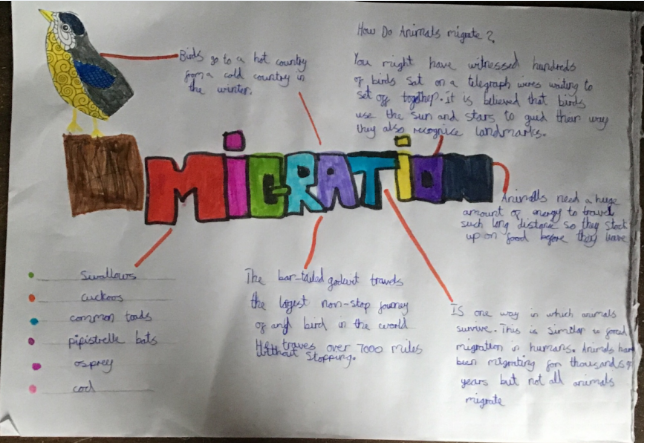 How Do Animals migrate?
You might have witnessed hundreds
of birds sat on a telegraph wires waiting to
set off together. it is believed that birds
use the sun and stars to guid their way
they also recognise landmarks.
Birds go to a hot country
from a cold country in
the winter.
MIGRATION
Animals need a huge
amount of energy to travel
such long distanse so they stock
up on food before they leave
swallows
cuckoos
common toads
pipistrelle bats
osprey
cod
The bar-tailed godwit travels
the logest non-stop journey
of any bird in the world
traves over 7000 miles
without stopping.
IS one way in which animals
survive. This is similar to
migration in humans. Animals have
been migrating for thousands of
years but not all animals
migrate